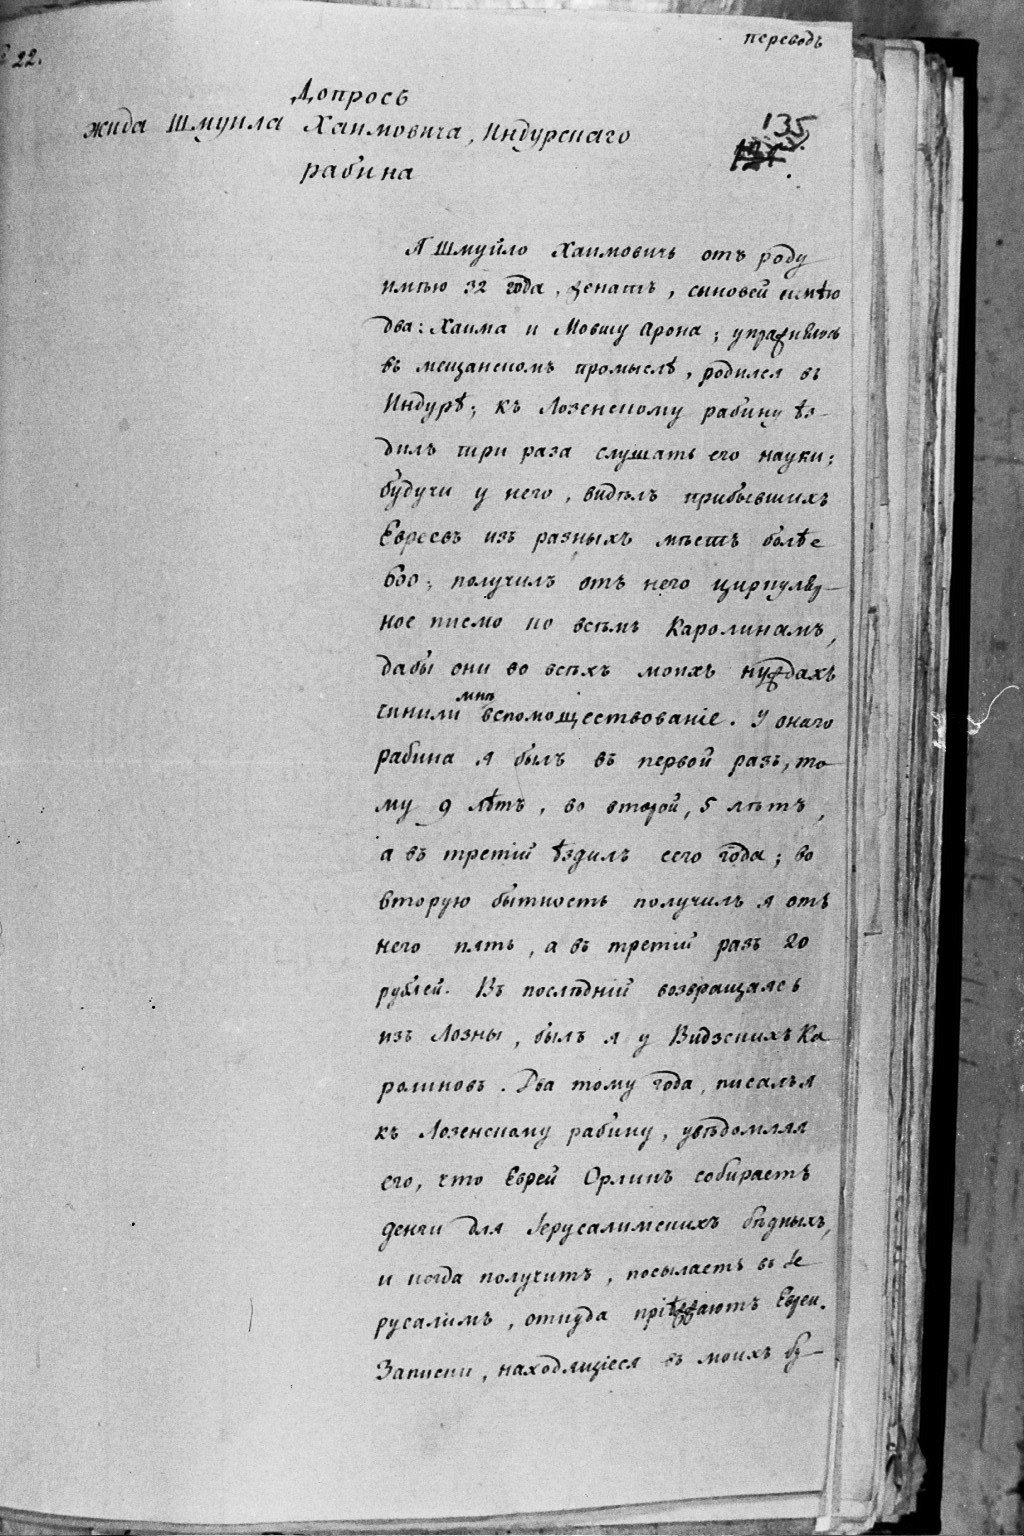 переводъ
22.
Допросъ
жида Шмуила Хаимовича, Индурскаго
рабина
135
Я Шмуйло Хаимовичь отъ роду
имѣю 32 года, женатъ, сыновей имѣю
два: Хаима и Мовшу Арона; упражняюсь
въ мещанскомъ промыслѣ, родился въ
Индурѣ; къ Лозенскому рабину ѣз-
дилъ три раза слушать его науки;
будучи у него, видѣлъ прибывшихъ
Евреевъ изъ разныхъ мѣстъ болѣе
600; получилъ отъ него циркуляр-
ное писмо ко всѣмъ Каролинамъ,
дабы они во всѣхъ моихъ нуждахъ
чинили мнѣ вспомоществованіе. У онаго
рабина я былъ въ первой разъ, то-
му 9 лѣтъ, во второй, 5 лѣтъ,
а въ третій ѣздилъ сего года; во
вторую бытность получилъ я отъ
него пять, а въ третій разъ 20
рублей. Въ послѣдній возвращаясь
изъ Лозны, былъ я у Видзскихъ Ка
ролиновъ. Два тому года, писалъ я
къ Лозенскому рабину, увѣдомляя
его, что Еврей Орликъ собираетъ
денги для Іерусалимскихъ бѣдныхъ,
и когда получитъ, посылаетъ въ Іе
русалимъ, откуда пріѣзжаютъ Евреи.
Записки, находящіеся въ моихъ бу-